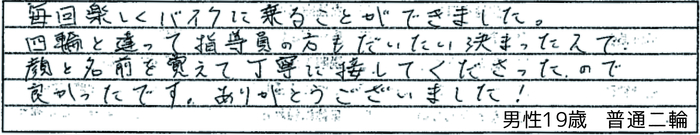 毎回楽しくバイクに乗ることができました。
四輪と違って指導員の方もだいたい決まったメンで
顔と名前を覚えて丁寧に接してくださったので
良かったです。ありがとうございました!
男性19歳 普通二輪